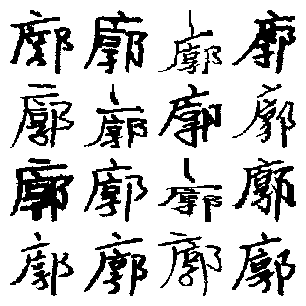 廓廓廓廓
廓廓廓廓
廓廓廓廓
廓廓廓廓